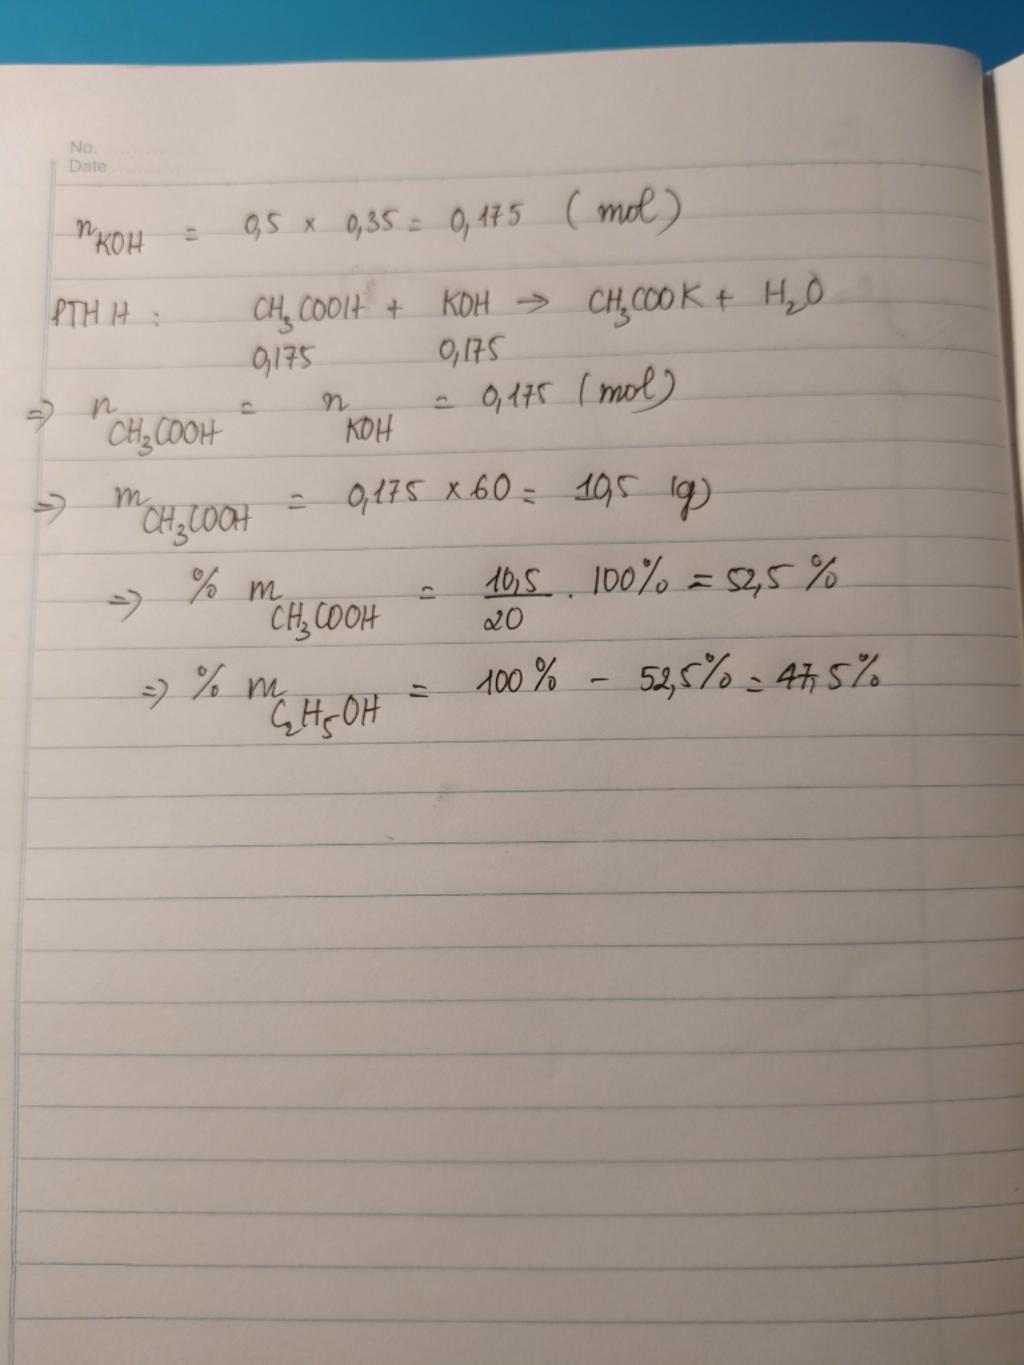 No.
Date
n KOH = 0,5 x 0,35 = 0,175 (mol)
PTHH: CH₃COOH + KOH → CH₃COOK + H₂O
0,175 0,175
=> n CH₃COOH = n KOH = 0,175 (mol)
=> m CH₃COOH = 0,175 x 60 = 10,5 (g)
=> % m CH₃COOH = 10,5/20 . 100% = 52,5 %
=> % m C₂H₅OH = 100% - 52,5% = 47,5%